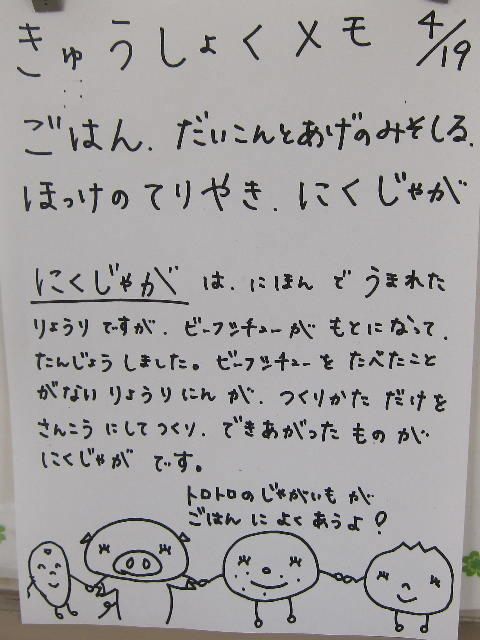 きゅうしょくメモ 4/19
ごはん、だいこんとあげのみそしる、
ほっけのてりやき、にくじゃが
にくじゃが は、にほん で うまれた
りょうり ですが、ビーフシチューが もとになって、
たんじょう しました。ビーフシチューを たべたこと
がない りょうりにん が、つくりかた だけを
さんこう にして つくり、できあがった もの が
にくじゃが です。
トロトロの じゃがいも が
ごはん に よく あうよ!